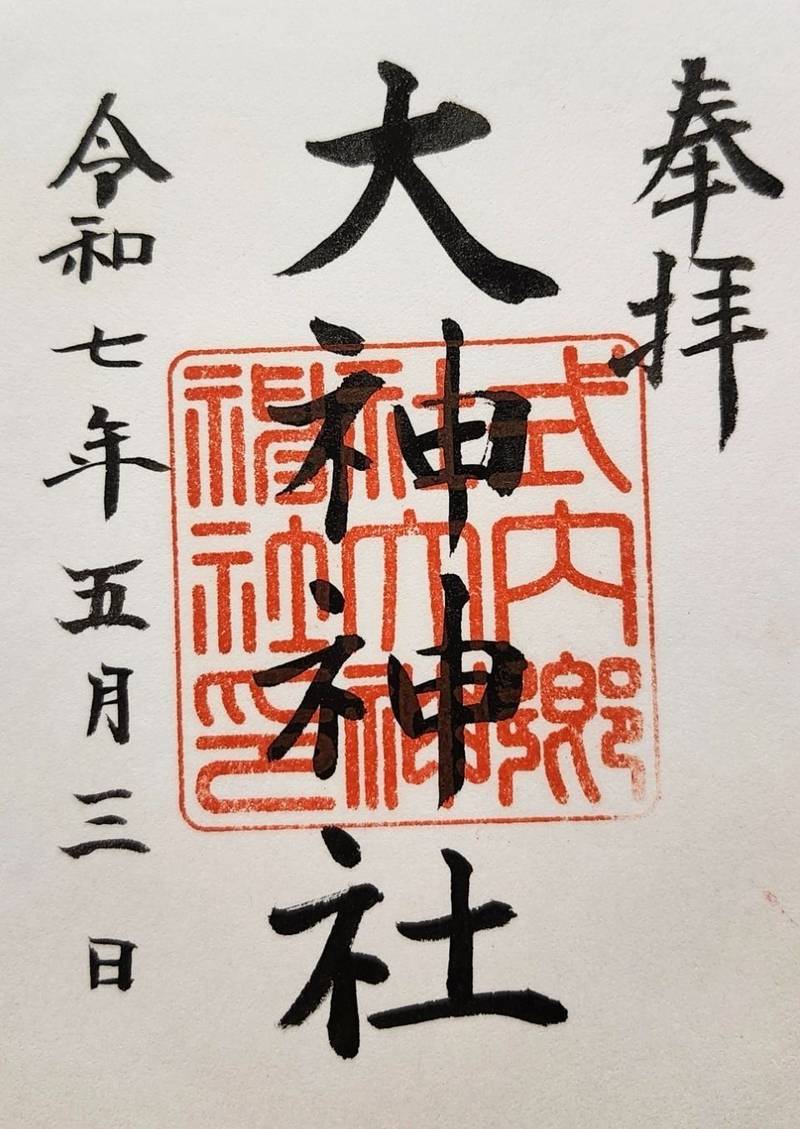 奉拝
大神神社
令和七年五月三日
式内郷
社大神
神社印